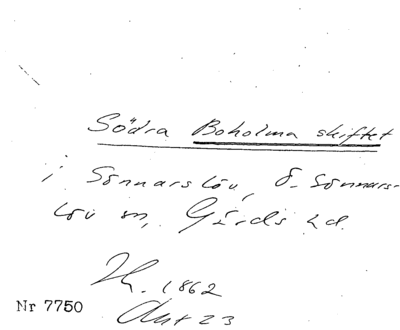 Södra Boholma skiftet
i Sönnarslöv, Ö. Sönnars-
löv sn, Gärds hd.
1862
Akt 23
Nr 7750